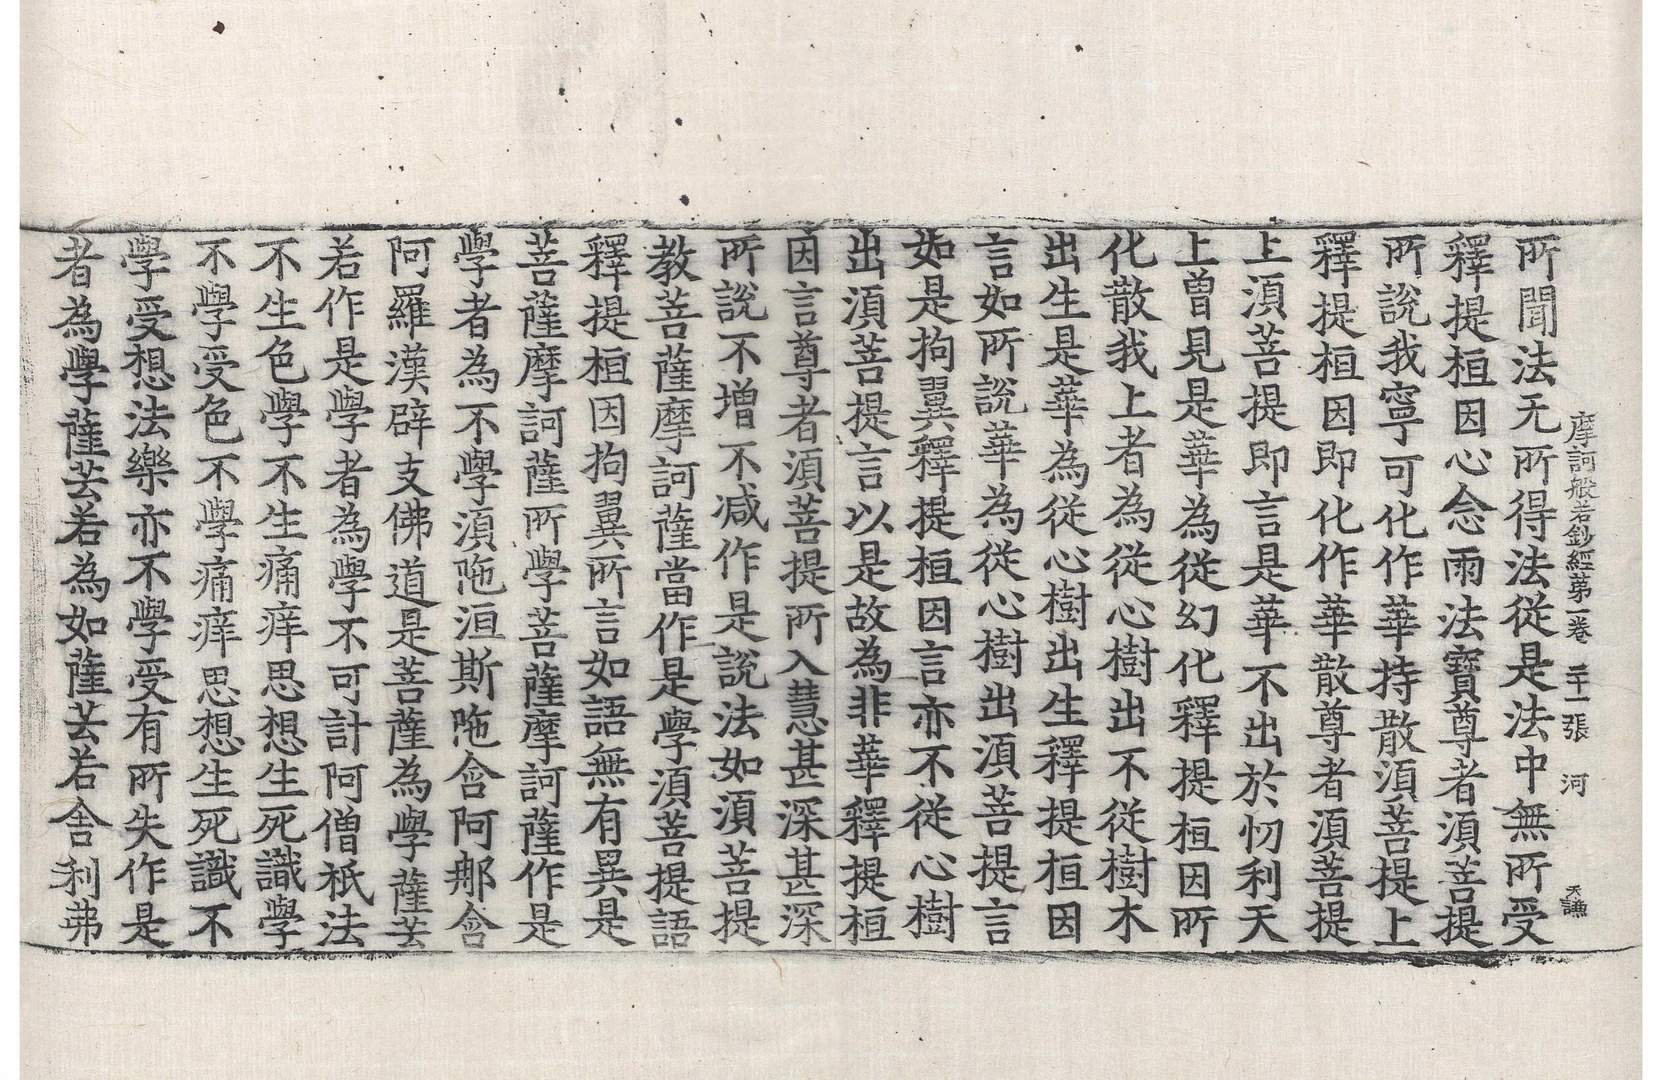 摩訶般若鈔經第一卷 二十一張 河 天謙
所聞法无所得法從是法中無所受
釋提桓因心念雨法寶尊者須菩提
所說我寧可化作華持散須菩提上
釋提桓因即化作華散尊者須菩提
上須菩提即言是華不出於忉利天
上曾見是華為從幻化釋提桓因所
化散我上者為從心樹出不從樹木
出生是華為從心樹出生釋提桓因
言如所說華為從心樹出須菩提言
如是拘翼釋提桓因言亦不從心樹
出須菩提言以是故為非華釋提桓
因言尊者須菩提所入慧甚深甚深
所說不增不減作是說法如須菩提
教菩薩摩訶薩當作是學須菩提語
釋提桓因拘翼所言如語無有異是
菩薩摩訶薩所學菩薩摩訶薩作是
學者為不學須陁洹斯陁含阿那含
阿羅漢辟支佛道是菩薩為學薩芸
若作是學者為學不可計阿僧祇法
不生色學不生痛痒思想生死識學
不學受色不學痛痒思想生死識不
學受想法樂亦不學受有所失作是
者為學薩芸若為如薩芸若舍利弗